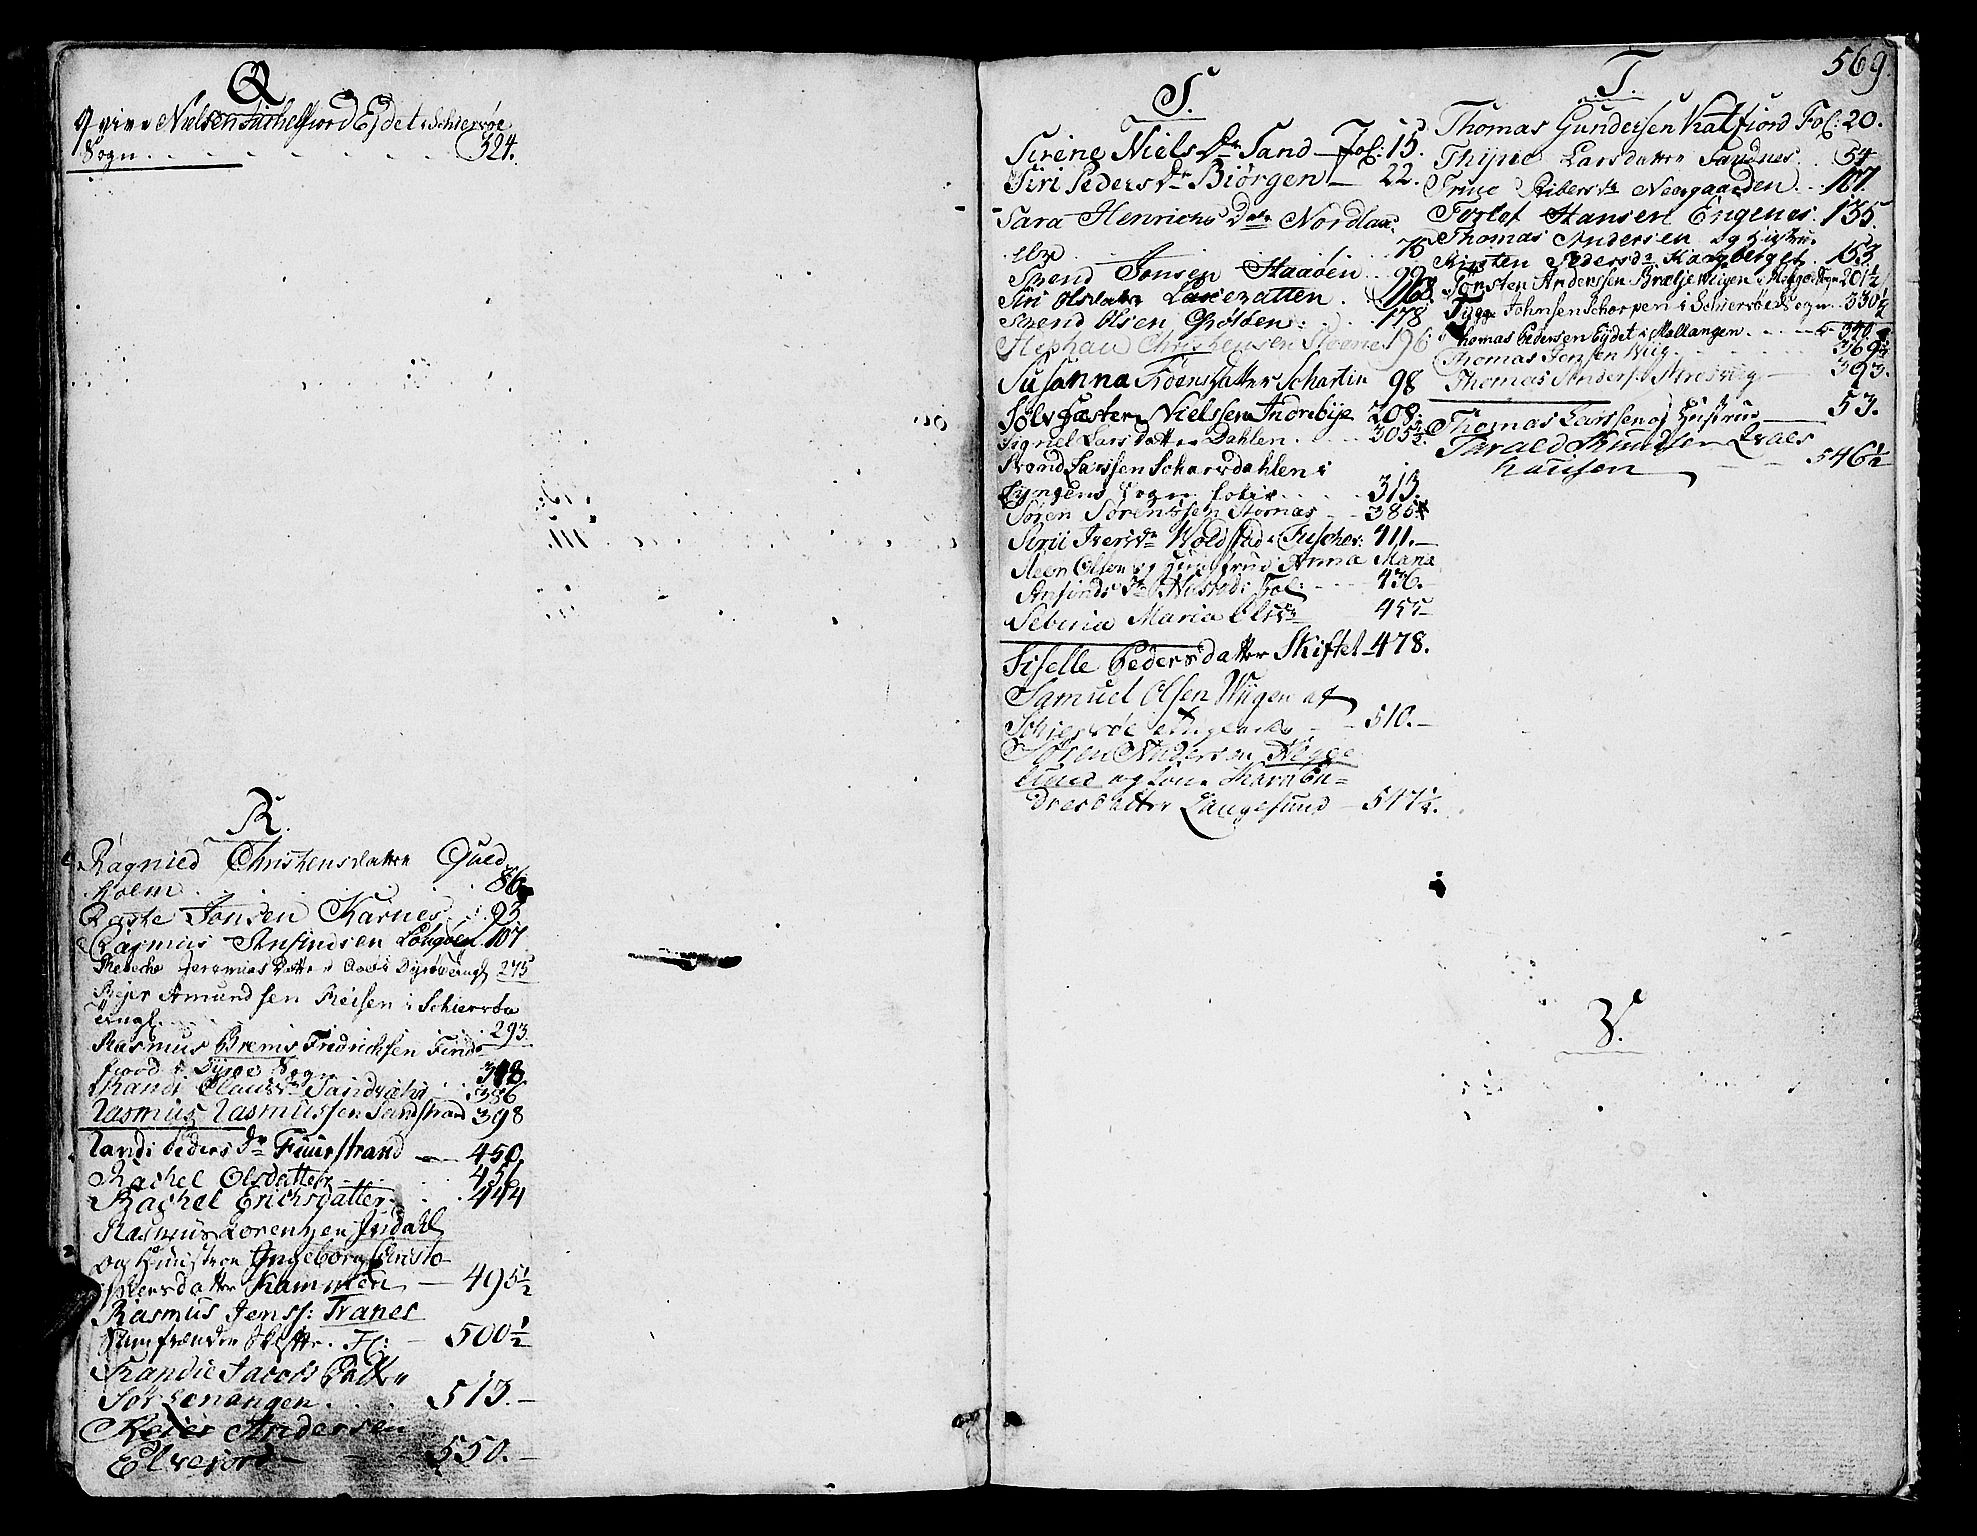 Q
Qvive Nielsen Jøchelfiord Eÿdet i Schiervøe
Sogn . . . . . . . 324.
R.
Ragnied Christensdatter Qued
holm . . . 86
Raste Jonsen Karnes . . 93
Rasmus Amundsen Longøen 107
Rebecha Jeremias Datter i Dyrøe Tingl 275
Rejer Amundsen Reisen i Schiervøe
Tingl. . . . 293.
Rasmus Brems Fredrichsen Find
fiord i Dyrøe Sogn 348
Randi Clausdr Sandvahr . . 386
Rasmus Rasmussen Sandstrand 398
Randi Peders Dr Fuurstrand — 450.
Rachel Olsdatter . . . 451
Rachel Erichsdatter . . . 444
Rasmus Lorentzen Indahl
og Huustroe Ingeborg Christo-
phersdatter Kammøen — 495½
Rasmus Jenss: Tranes
Samfrender Skifte. Fl: — 500½
Randie Jacobs Datter
Sør Lenangen . . . 513.—
Reier Andersen
Elvejord — — 550.—
569.
S.
Sirene Niels Dr Sand — Fol: 15.
Siri Peders Dr Biørgen — 22.
Sara Henrichs Dr Nordlax
. . . 70
Svend Jonsen Staaøen . . 99
Siri Olsdatter Laxevatten . . 168.
Svend Olsen . . . 178
Stephan Christensen 196
Susanna Datter Schartin 98
Solv faster Nielssen Indrebye 208.
Signel Lars Datter Dahlen . . . 305½
Svend Larssen Schaersdahlen i
Lyngens Sogn Folio . . . 313.
Søren Sørenssen Stornas — 385
Sirii Iversdr Woldstad i Fuschev: 411.—
Steen Olsen og Huustrue Anna Maria
Amunds Dr Husnæs Fol: . . . 436.
Sebina Maria Olsdr 455
Siselle Pedersdatter Skiftet 478.
Samuel Olsen Wiigen af
Schiervøe Tinglaug — 510.—
Søren Andersen Hegge
lund og Kone Karn En=
dresdatter Langesund — 547½.
T.
Thomas Gundersen Katfiord Fol: 20.
Larsdatter Sandnes . . 54
Trine Ribersdr Neergaarden . . 107.
Torlef Hansen Engenes . 135.
Thomas Andersen og Hustrue
Kirsten Pedersdr Haagberget . 153.
Torsten Anderssen Brætje Wigen i Helgøe Sogn 201½
Tÿgge Johnsen Schorpen i Schiervøe Sogn . 330½
Thomas Pedersen Eÿdet i Mallangen . . . 340.
Thomas Jensen Wiig . . . . . 369½
Thomas Anders: — 393.
Thomas Larssen og Hustrue — 53.
Tarald Knudsen Qvæs
hausen — — 546½
Z.